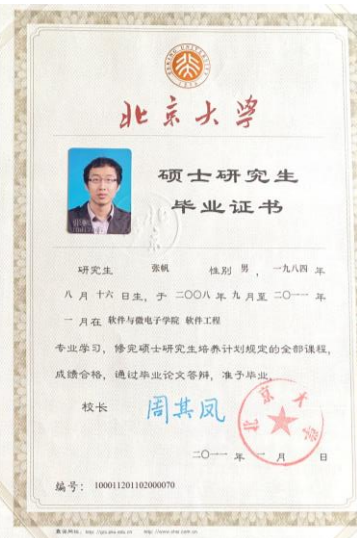 北京大学
硕士研究生
毕业证书
研究生 张帆 性别 男 ， 一九八四 年
八 月 十六 日生，于 二〇〇八 年 九 月至 二〇一一 年
一 月在 软件与微电子学院 软件工程
专业学习，修完硕士研究生培养计划规定的全部课程，
成绩合格，通过毕业论文答辩，准予毕业。
校长 周其凤
北京大学
二〇一一 年 一 月 日
编号： 100011201102000070